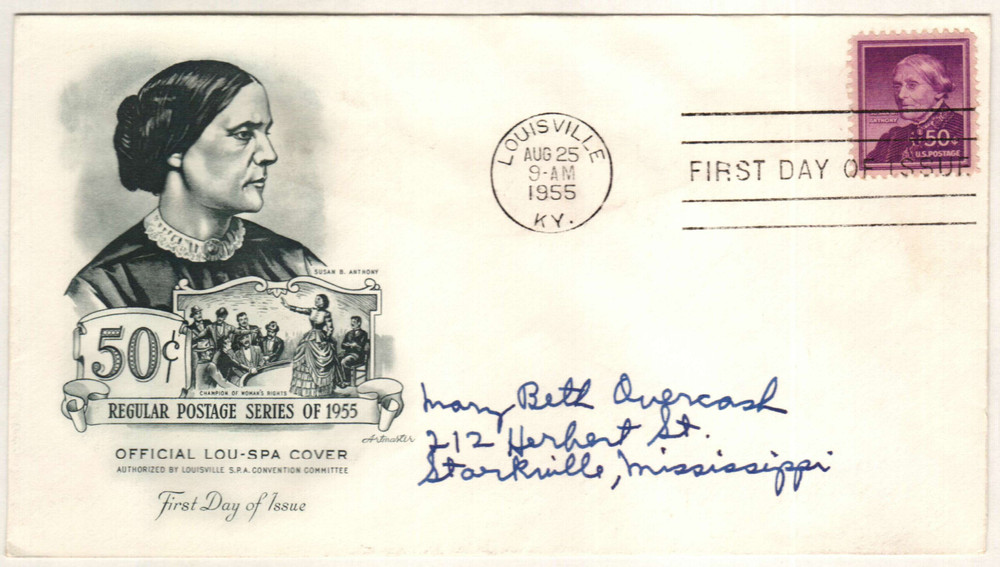 LOUISVILLE
AUG 25
9-AM
1955
KY.
FIRST DAY OF ISSUE
ANTHONY
50¢
U.S. POSTAGE
SUSAN B. ANTHONY
50¢
CHAMPION OF WOMAN'S RIGHTS
REGULAR POSTAGE SERIES OF 1955
Artmaster
OFFICIAL LOU-SPA COVER
AUTHORIZED BY LOUISVILLE S.P.A. CONVENTION COMMITTEE
First Day of Issue
Mary Beth Overcash
212 Herbert St.
Starkville, Mississippi